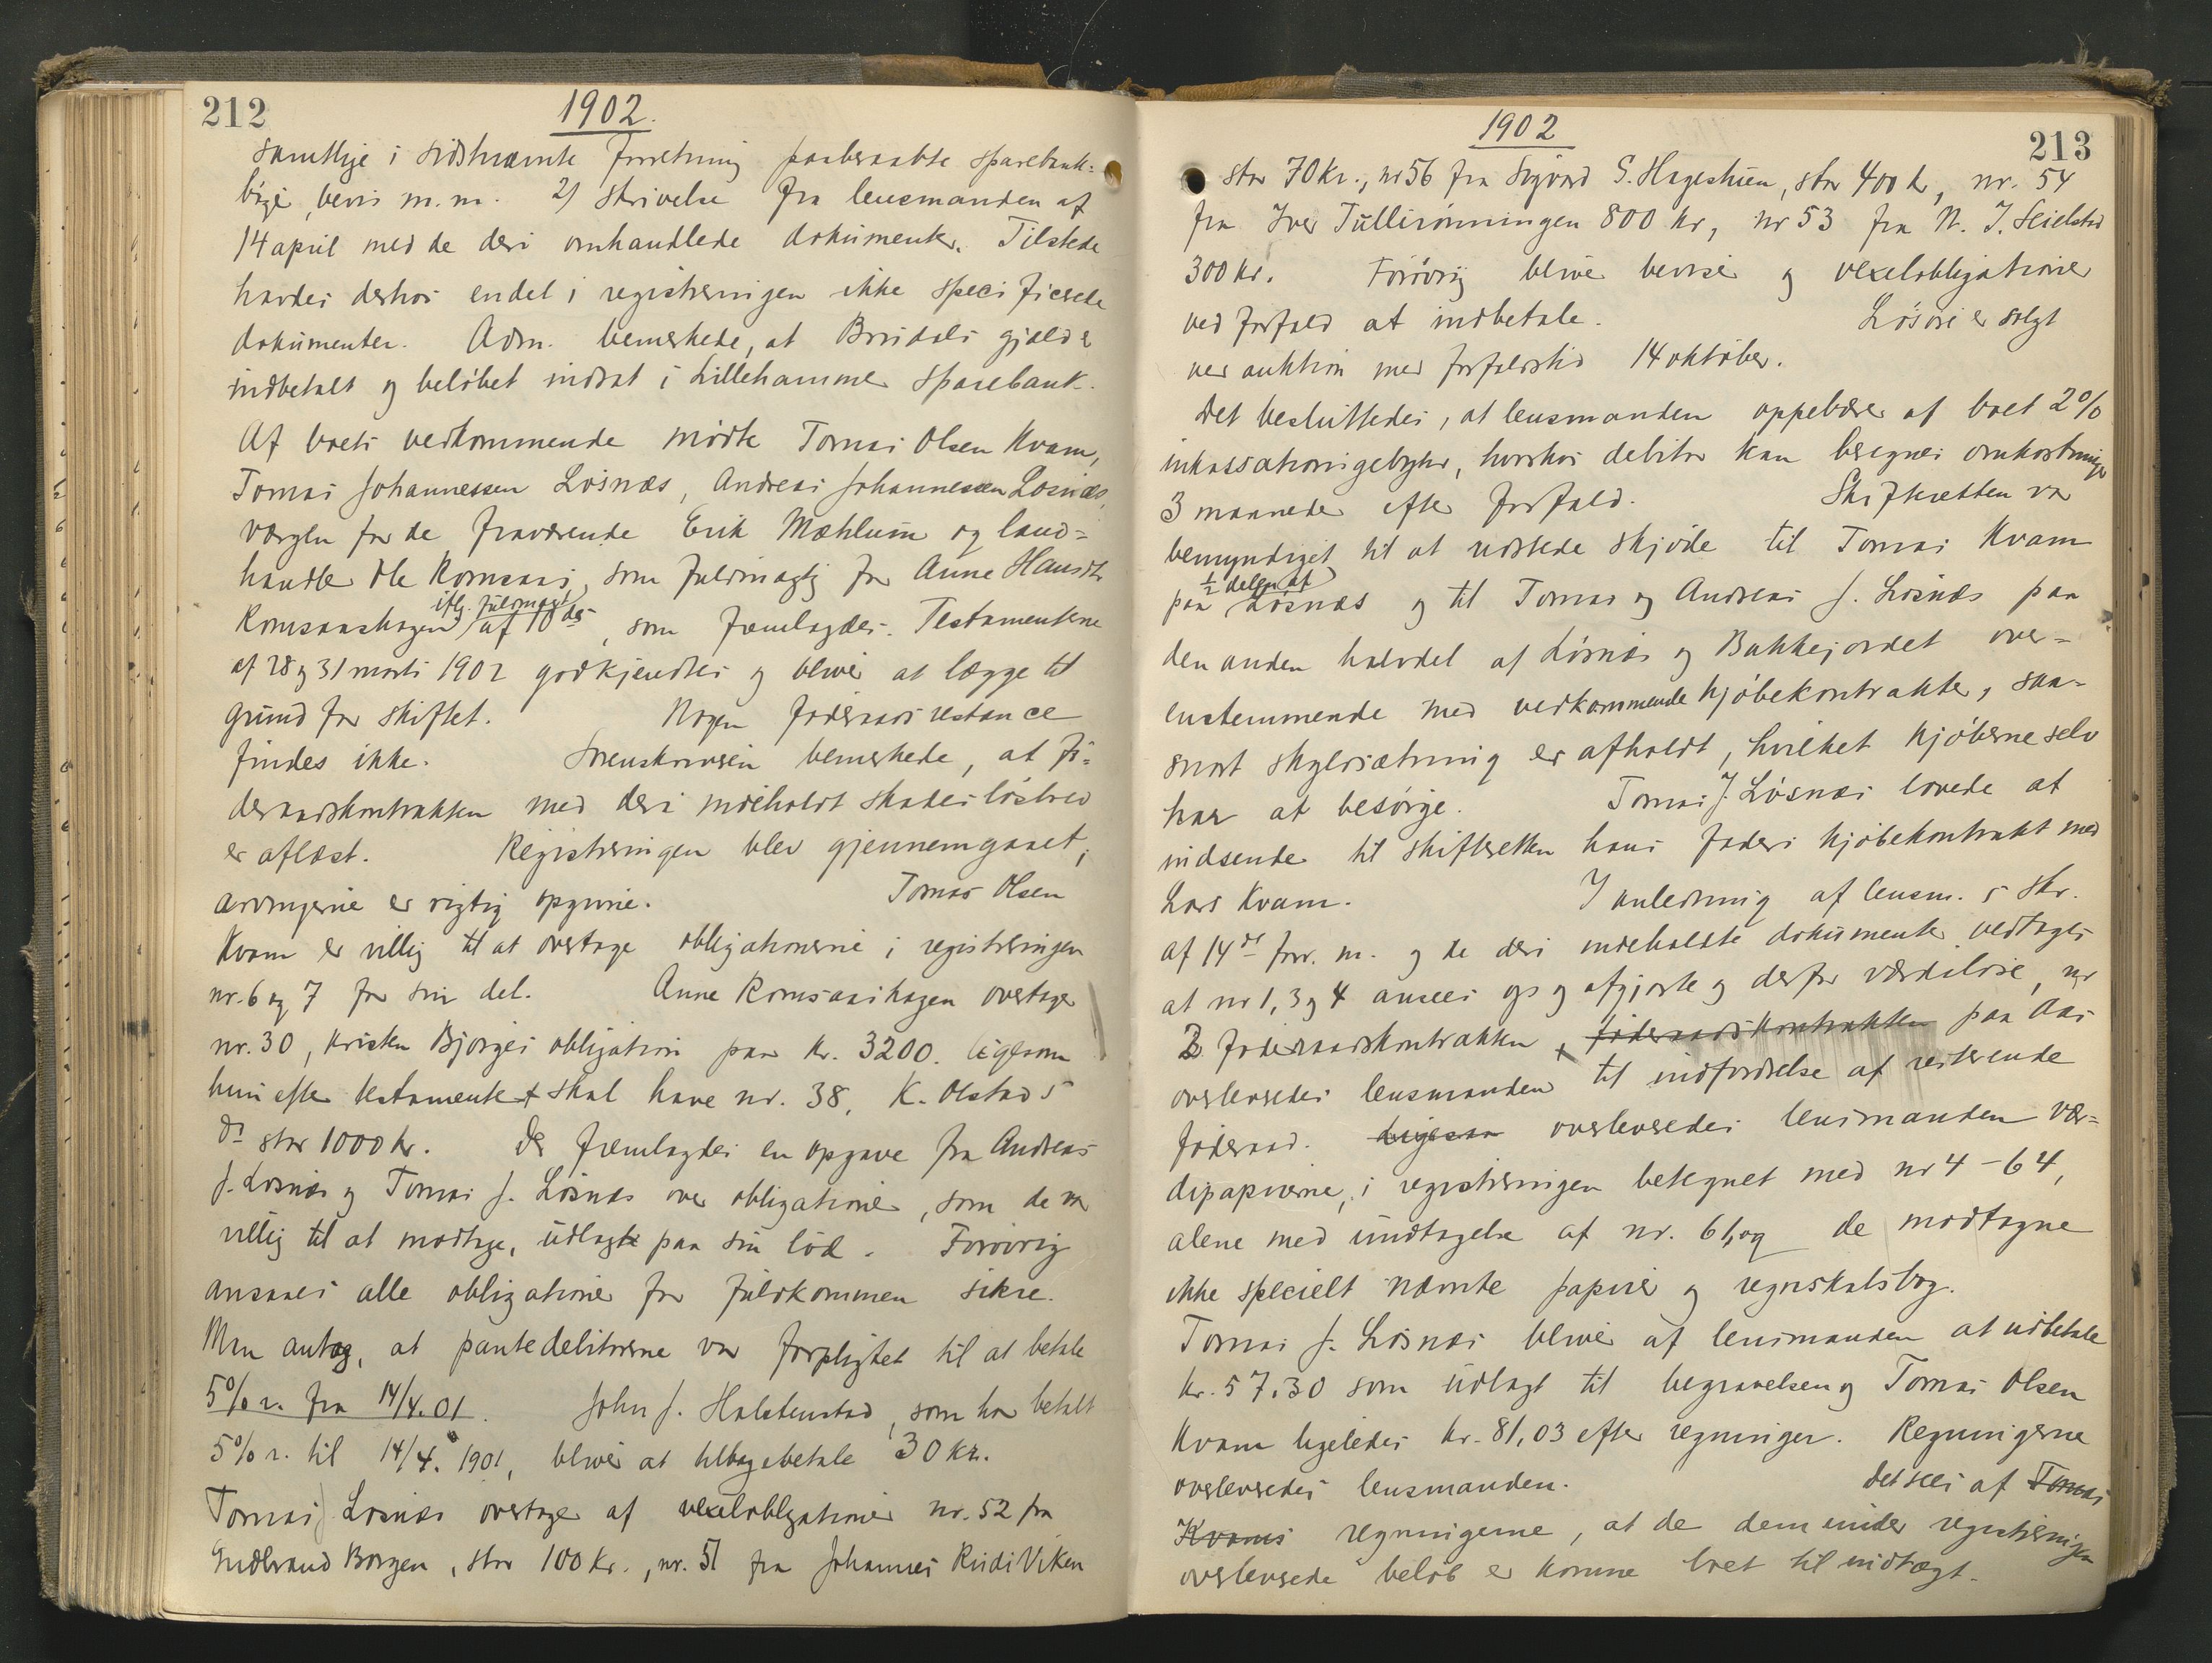 212
1902.
samtlige i sidstnævnte forretning paaberaabte sparebank-
bøger, bevis m.m. 2) skrivelse fra lensmanden af
14 april med de deri omhandlede dokumenter. Tilstede
havdes derhos endel i registreringen ikke specificerede
dokumenter. Adm. bemerkede, at Brudals gjæld er
indbetalt og beløbet indsat i Lillehammer sparebank.
Af boets vedkommende mødte Tomas Olsen Kvam,
Tomas Johannessen Losnæs, Andreas Johannessen Losnæs,
værgen for de fraværende Erik Mæhlum og land-
handler Ole Romsaas, som fuldmægtig for Anne Hansdtr
Romsaashagen iflg. fuldmagt af 18 ds, som fremlagdes. Testamenterne
af 28 og 31 marts 1902 godkjendtes og bliver at lægge til
grund for skiftet. Nogen føderaadsrestance
findes ikke. Sorenskriveren bemerkede, at fø-
deraadskontrakten med deri indeholdt skadesløsbrev
er aflæst. Registreringen blev gjennemgaaet;
arvingerne er rigtig opgivne. Tomas Olsen
Kvam er villig til at overtage obligationerne i registreringen
nr. 6 og 7 for sin del. Anne Romsaashagen overtager
nr. 30, Kristen Bjørges obligation paa kr. 3200. ligesom
hun efter testamentet skal have nr. 38, K. Olstads
do stor 1000 kr. Der fremlagdes en opgave fra Andreas
J. Losnæs og Tomas J. Losnæs over obligationer, som de var
villig til at modtage, udlagte paa sin lod. Forøvrig
ansaaes alle obligationer for fuldkommen sikre.
Man antog, at pantedebitorerne var forpligtet til at betale
5% r. fra 14/4.01. John J. Halstenstad, som har betalt
5% r. til 14/4. 1901, bliver at tilbagebetale 30 kr.
Tomas J Losnæs overtager af vexelobligationer nr. 52 fra
Gudbrand Borgen, stor 100 kr., nr. 51 fra Johannes Rudi Viken
213
1902
stor 70 kr., nr 56 fra Sigvard S. Hagestuen, stor 400 kr, nr. 54
fra Iver Tullirønningen 800 kr, nr 53 fra N. J. Seielstad
300 kr. Forøvrig bliver beviser og vexelobligationer
ved forfald at indbetale. Løsøre er solgt
ved auktion med forfaldstid 14 oktober.
Det besluttedes, at lensmanden oppebærer af boet 2%
inkassationsgebyhr, hvorhos debitor kan beregnes omkostninger
3 maaneder efter forfald. Skifteretten var
bemyndiget til at udstede skjøde til Tomas Kvam
paa 1/2 delen af Losnæs og til Tomas og Andreas J. Losnæs paa
den anden halvdel af Losnæs og Bakkejordet over-
enstemmende med vedkommende kjøbekontrakter, saa-
snart skyldsætning er afholdt, hvilket kjøberne selv
har at besørge. Tomas J. Losnæs lovede at
indsende til skifteretten hans faders kjøbekontrakt med
Lars Kvam. I anledning af lensm.s skr.
af 14de forr. m. og de deri indeholdte dokumenter vedtages
at nr 1, 3 og 4 ansees op og afgjorte og derfor værdiløse, nr
2 føderaadskontrakten, føderaadskontrakten paa Aas
overleveredes lensmanden til indfordrelse af resterende
føderaad. Ligesaa overleveredes lensmanden vær-
dipapirerne, i registreringen betegnet med nr 4 - 64,
alene med undtagelse af nr. 61, og de modtagne
ikke specielt nævnte papirer og regnskabsbog.
Tomas J. Losnæs bliver af lensmanden at udbetale
kr. 57.30 som udlagt til begravelsen og Tomas Olsen
Kvam ligeledes kr. 81,03 efter regninger. Regningerne
overleveredes lensmanden. Det sees af Tomas
Kvams regningerne, at de dem under registreringen
overleverede beløb er komne boet til indtægt.